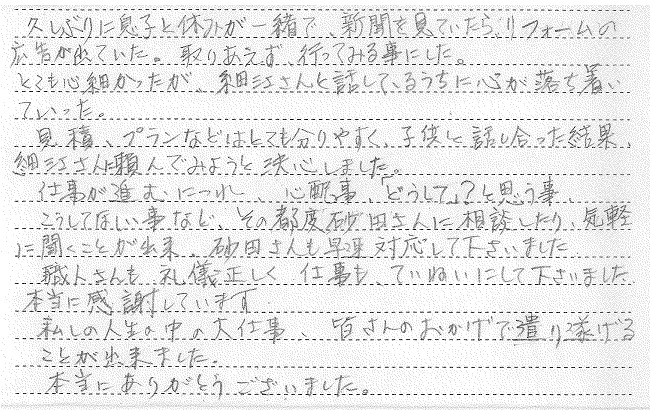 久しぶりに息子と休みが一緒で、新聞を見ていたらリフォームの
広告が出ていた。取りあえず、行ってみる事にした。
とても心細かったが、細江さんと話しているうちに心が落ち着い
ていった。
見積、プランなどはとても分りやすく、子供と話し合った結果、
細江さんに頼んでみようと決心しました。
仕事が進むにつれ、心配事、「どうして」?と思う事、
こうしてない事など、その都度砂田さんに相談したり、気軽
に聞くことが出来、砂田さんも早速対応して下さいました
職人さんも礼儀正しく仕事も、ていねいにして下さいました
本当に感謝しています
私しの人生の中の大仕事、皆さんのおかげで遣り遂げる
ことが出来ました。
本当にありがとうございました。